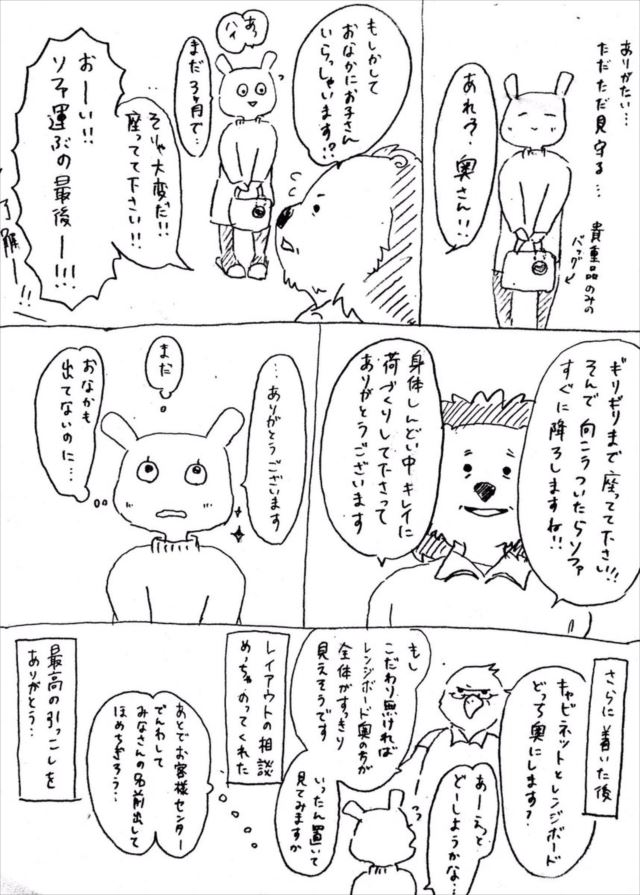 ありがたい…
ただただ見守る…
貴重品のみの
バッグ
あれっ、奥さん!!
もしかして
おなかにお子さん
いらっしゃいます!?
あっ
ハイ
まだ3ヶ月で…
そりゃ大変だ!!
座ってて下さい!!
おーい!!
ソファ運ぶの最後ー!!!
了解ー!!
ギリギリまで座ってて下さい!!
そんで向こうついたらソファ
すぐに降ろしますね!!
身体しんどい中キレイに
荷づくりして下さって
ありがとうございます
…ありがとうございます
まだ
おなかも
出てないのに…
さらに着いた後
キャビネットとレンジボード
どっち奥にします?
あーえっと
どーしようかな
もし
こだわり無ければ
レンジボード奥の方が
全体がすっきり
見えそうです
いったん置いて
見てみますか
レイアウトの相談
めっちゃのってくれた
あとでお客様センター
でんわして
みなさんの名前出して
ほめちぎろう…
最高の引っこしを
ありがとう…